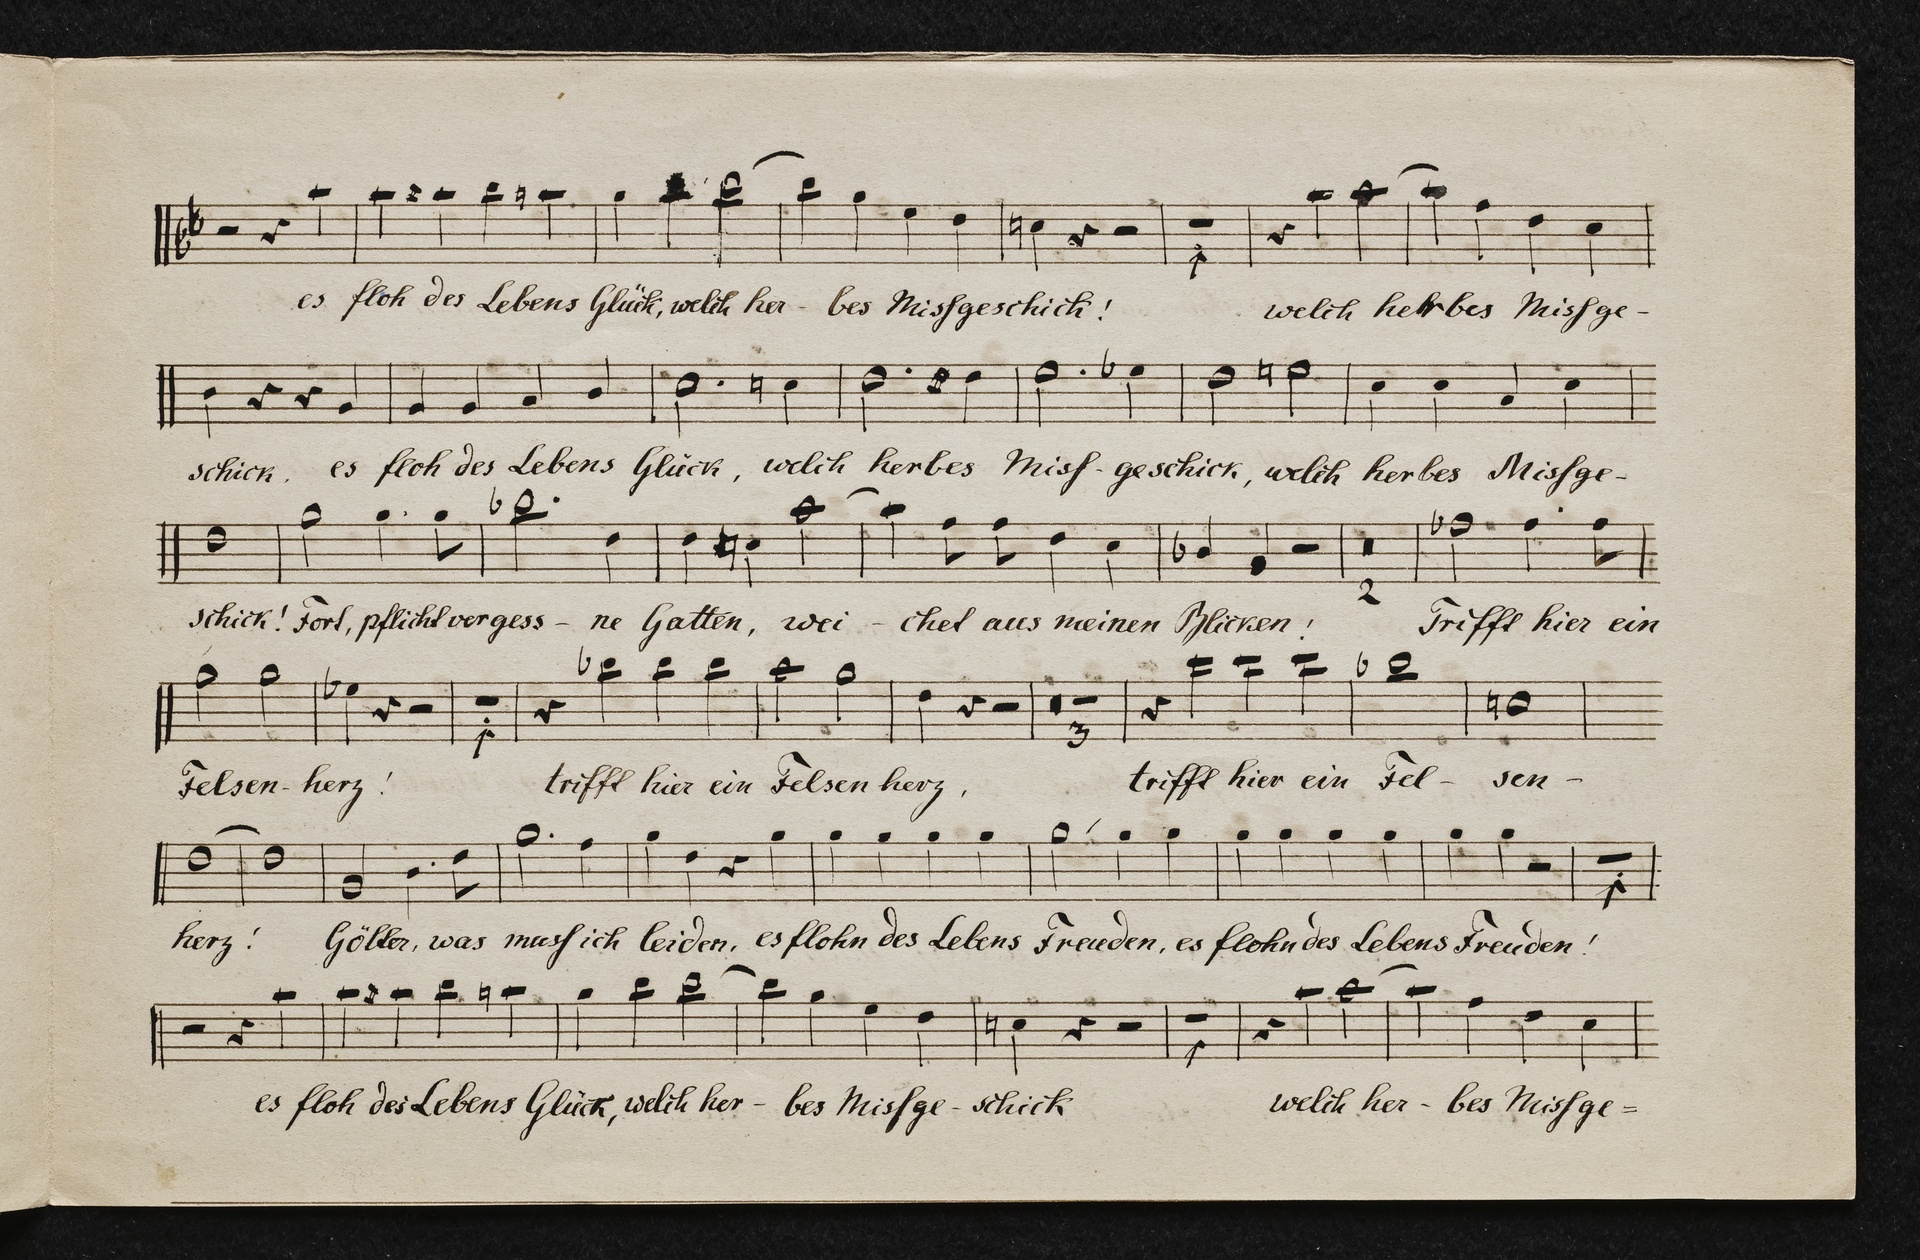 es floh des Lebens Glück, welch her - bes Missgeschick! welch herbes Missge -
schick. es floh des Lebens Glück, welch herbes Miss - geschick, welch herbes Missge -
2
schick! Fort, pflichtvergess - ne Gatten, wei - chet aus meinen Blicken! Trifft hier ein
3
Felsen - herz! trifft hier ein Felsen herz, trifft hier ein Fel - sen -
herz! Götter, was muss ich leiden, es flohn des Lebens Freuden, es flohn des Lebens Freuden!
es floh des Lebens Glück, welch her - bes Missge - schick welch her - bes Missge =